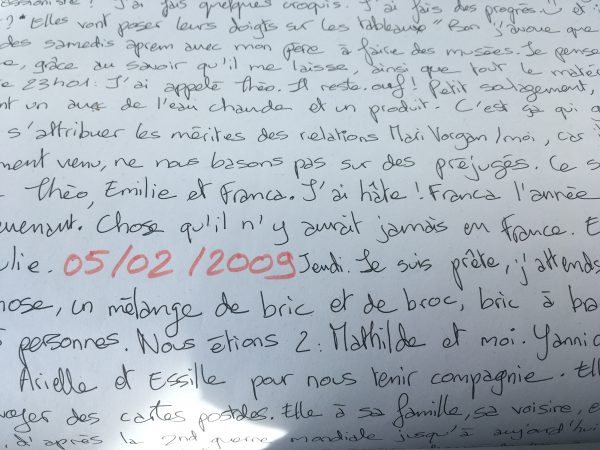 ! J'ai fais quelques croquis. J'ai fais des progrès et
? "Elles vont poser leurs doigts sur les tableaux" Bon j'avoue que
des samedis aprem avec mon père à faire des musées. Je pense
, grâce au savoir qu'il me laisse, ainsi que tout le maté
23h01: J'ai appelé Théo. Il reste. ouf! Petit soulagement,
nt un de l'eau chaude et un produit. C'est ça qui
s'attribuer les mérites des relations Mari Vorgan/moi, car
ment venu, ne nous basons pas sur des préjugés. Ce s
Théo, Emilie et Franca. J'ai hâte! Franca l'année
venant. Chose qu'il n'y aurait jamais en france. E
ulie. 05/02/2009 Jeudi. Je suis prête, j'attends
hose, un mélange de bric et de broc, bric à bra
personnes. Nous étions 2: Mathilde et moi. Yannic
Arielle et Essille pour nous tenir compagnie. Ell
voyer des cartes postales. Elle à sa famille, sa voisire, e
. d'après la 2nd guerre mondiale jusqu'à aujourd'hui